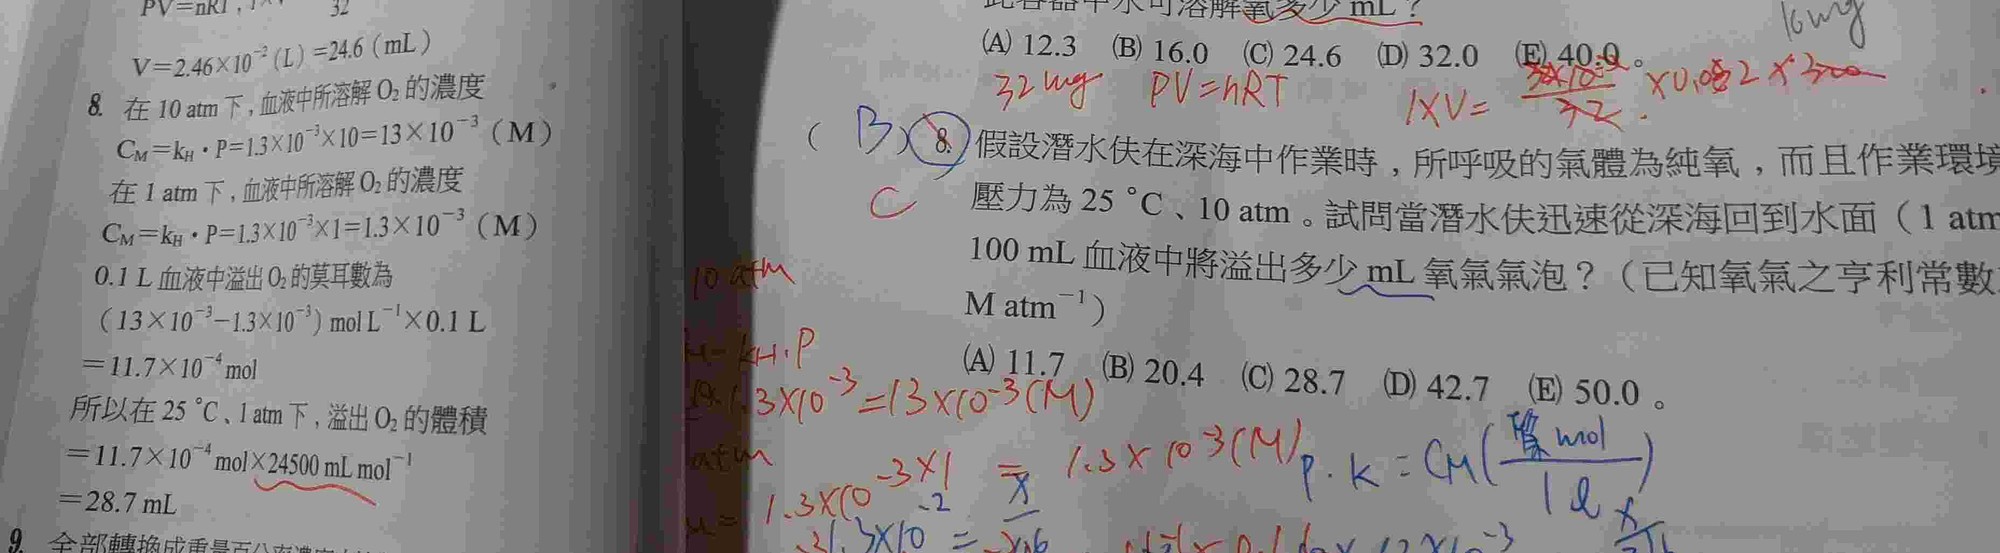 PV=nRT,
32
V=2.46×10⁻²(L)=24.6(mL)
8. 在 10 atm 下,血液中所溶解 O₂ 的濃度
C_M=k_H·P=1.3×10⁻³×10=13×10⁻³(M)
在 1 atm 下,血液中所溶解 O₂ 的濃度
C_M=k_H·P=1.3×10⁻³×1=1.3×10⁻³(M)
0.1 L 血液中溢出 O₂ 的莫耳數為
(13×10⁻³−1.3×10⁻³) mol L⁻¹×0.1 L
=11.7×10⁻⁴ mol
所以在 25 ℃、1 atm 下,溢出 O₂ 的體積
=11.7×10⁻⁴ mol×24500 mL mol⁻¹
=28.7 mL
9. 全部轉換成重量百分率濃度
此容器中水可溶解氧多少 mL?
16mg
(A) 12.3 (B) 16.0 (C) 24.6 (D) 32.0 (E) 40.0。
32mg PV=nRT 1×V= 32 ×0.082×300
( B ) 8. 假設潛水伕在深海中作業時,所呼吸的氣體為純氧,而且作業環境
C
壓力為 25 ℃、10 atm。試問當潛水伕迅速從深海回到水面(1 atm
100 mL 血液中將溢出多少 mL 氧氣氣泡?(已知氧氣之亨利常數
M atm⁻¹)
(A) 11.7 (B) 20.4 (C) 28.7 (D) 42.7 (E) 50.0。
10 atm
kH·P
1.3×10⁻³=13×10⁻³(M)
atm
1.3×10⁻³×1 = 1.3×10⁻³(M)
P·K = CM( mol / 1l )